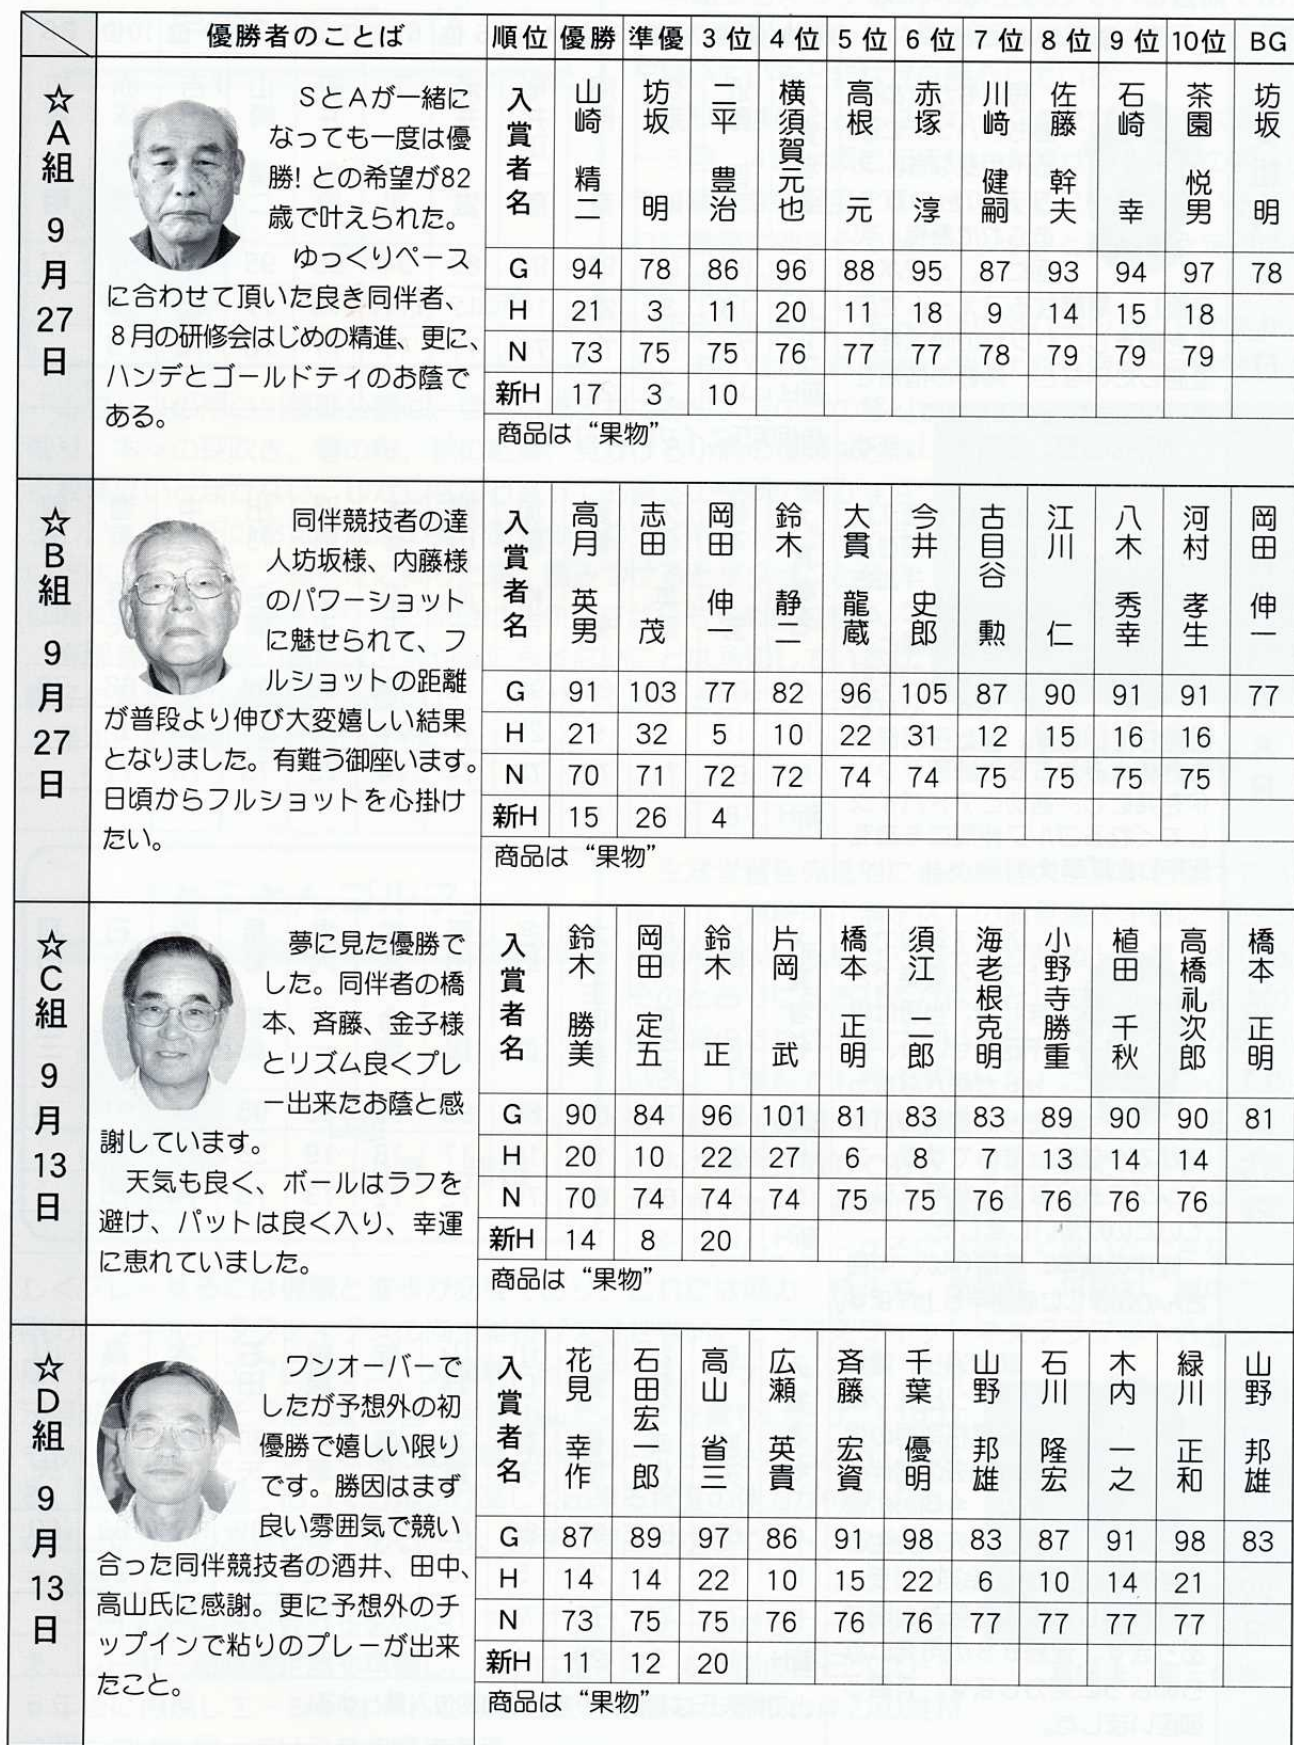 優勝者のことば 順位 優勝 準優 3位 4位 5位 6位 7位 8位 9位 10位 BG
☆A組 9月27日
SとAが一緒に
なっても一度は優
勝! との希望が82
歳で叶えられた。
ゆっくりペース
に合わせて頂いた良き同伴者、
8月の研修会はじめの精進、更に、
ハンデとゴールドティのお蔭で
ある。
入賞者名 山崎 精二 坊坂 明 二平 豊治 横須賀元也 高根 元 赤塚 淳 川﨑 健嗣 佐藤 幹夫 石崎 幸 茶園 悦男 坊坂 明
G 94 78 86 96 88 95 87 93 94 97 78
H 21 3 11 20 11 18 9 14 15 18
N 73 75 75 76 77 77 78 79 79 79
新H 17 3 10
商品は“果物”
☆B組 9月27日
同伴競技者の達
人坊坂様、内藤様
のパワーショット
に魅せられて、フ
ルショットの距離
が普段より伸び大変嬉しい結果
となりました。有難う御座います。
日頃からフルショットを心掛け
たい。
入賞者名 高月 英男 志田 茂 岡田 伸一 鈴木 静二 大貫 龍蔵 今井 史郎 古目谷 勲 江川 仁 八木 秀幸 河村 孝生 岡田 伸一
G 91 103 77 82 96 105 87 90 91 91 77
H 21 32 5 10 22 31 12 15 16 16
N 70 71 72 72 74 74 75 75 75 75
新H 15 26 4
商品は“果物”
☆C組 9月13日
夢に見た優勝で
した。同伴者の橋
本、斉藤、金子様
とリズム良くプレ
ー出来たお蔭と感
謝しています。
天気も良く、ボールはラフを
避け、パットは良く入り、幸運
に恵れていました。
入賞者名 鈴木 勝美 岡田 定五 鈴木 正 片岡 武 橋本 正明 須江 二郎 海老根克明 小野寺勝重 植田 千秋 高橋礼次郎 橋本 正明
G 90 84 96 101 81 83 83 89 90 90 81
H 20 10 22 27 6 8 7 13 14 14
N 70 74 74 74 75 75 76 76 76 76
新H 14 8 20
商品は“果物”
☆D組 9月13日
ワンオーバーで
したが予想外の初
優勝で嬉しい限り
です。勝因はまず
良い雰囲気で競い
合った同伴競技者の酒井、田中、
高山氏に感謝。更に予想外のチ
ップインで粘りのプレーが出来
たこと。
入賞者名 花見 幸作 石田宏一郎 高山 省三 広瀬 英貴 斉藤 宏資 千葉 優明 山野 邦雄 石川 隆宏 木内 一之 緑川 正和 山野 邦雄
G 87 89 97 86 91 98 83 87 91 98 83
H 14 14 22 10 15 22 6 10 14 21
N 73 75 75 76 76 76 77 77 77 77
新H 11 12 20
商品は“果物”